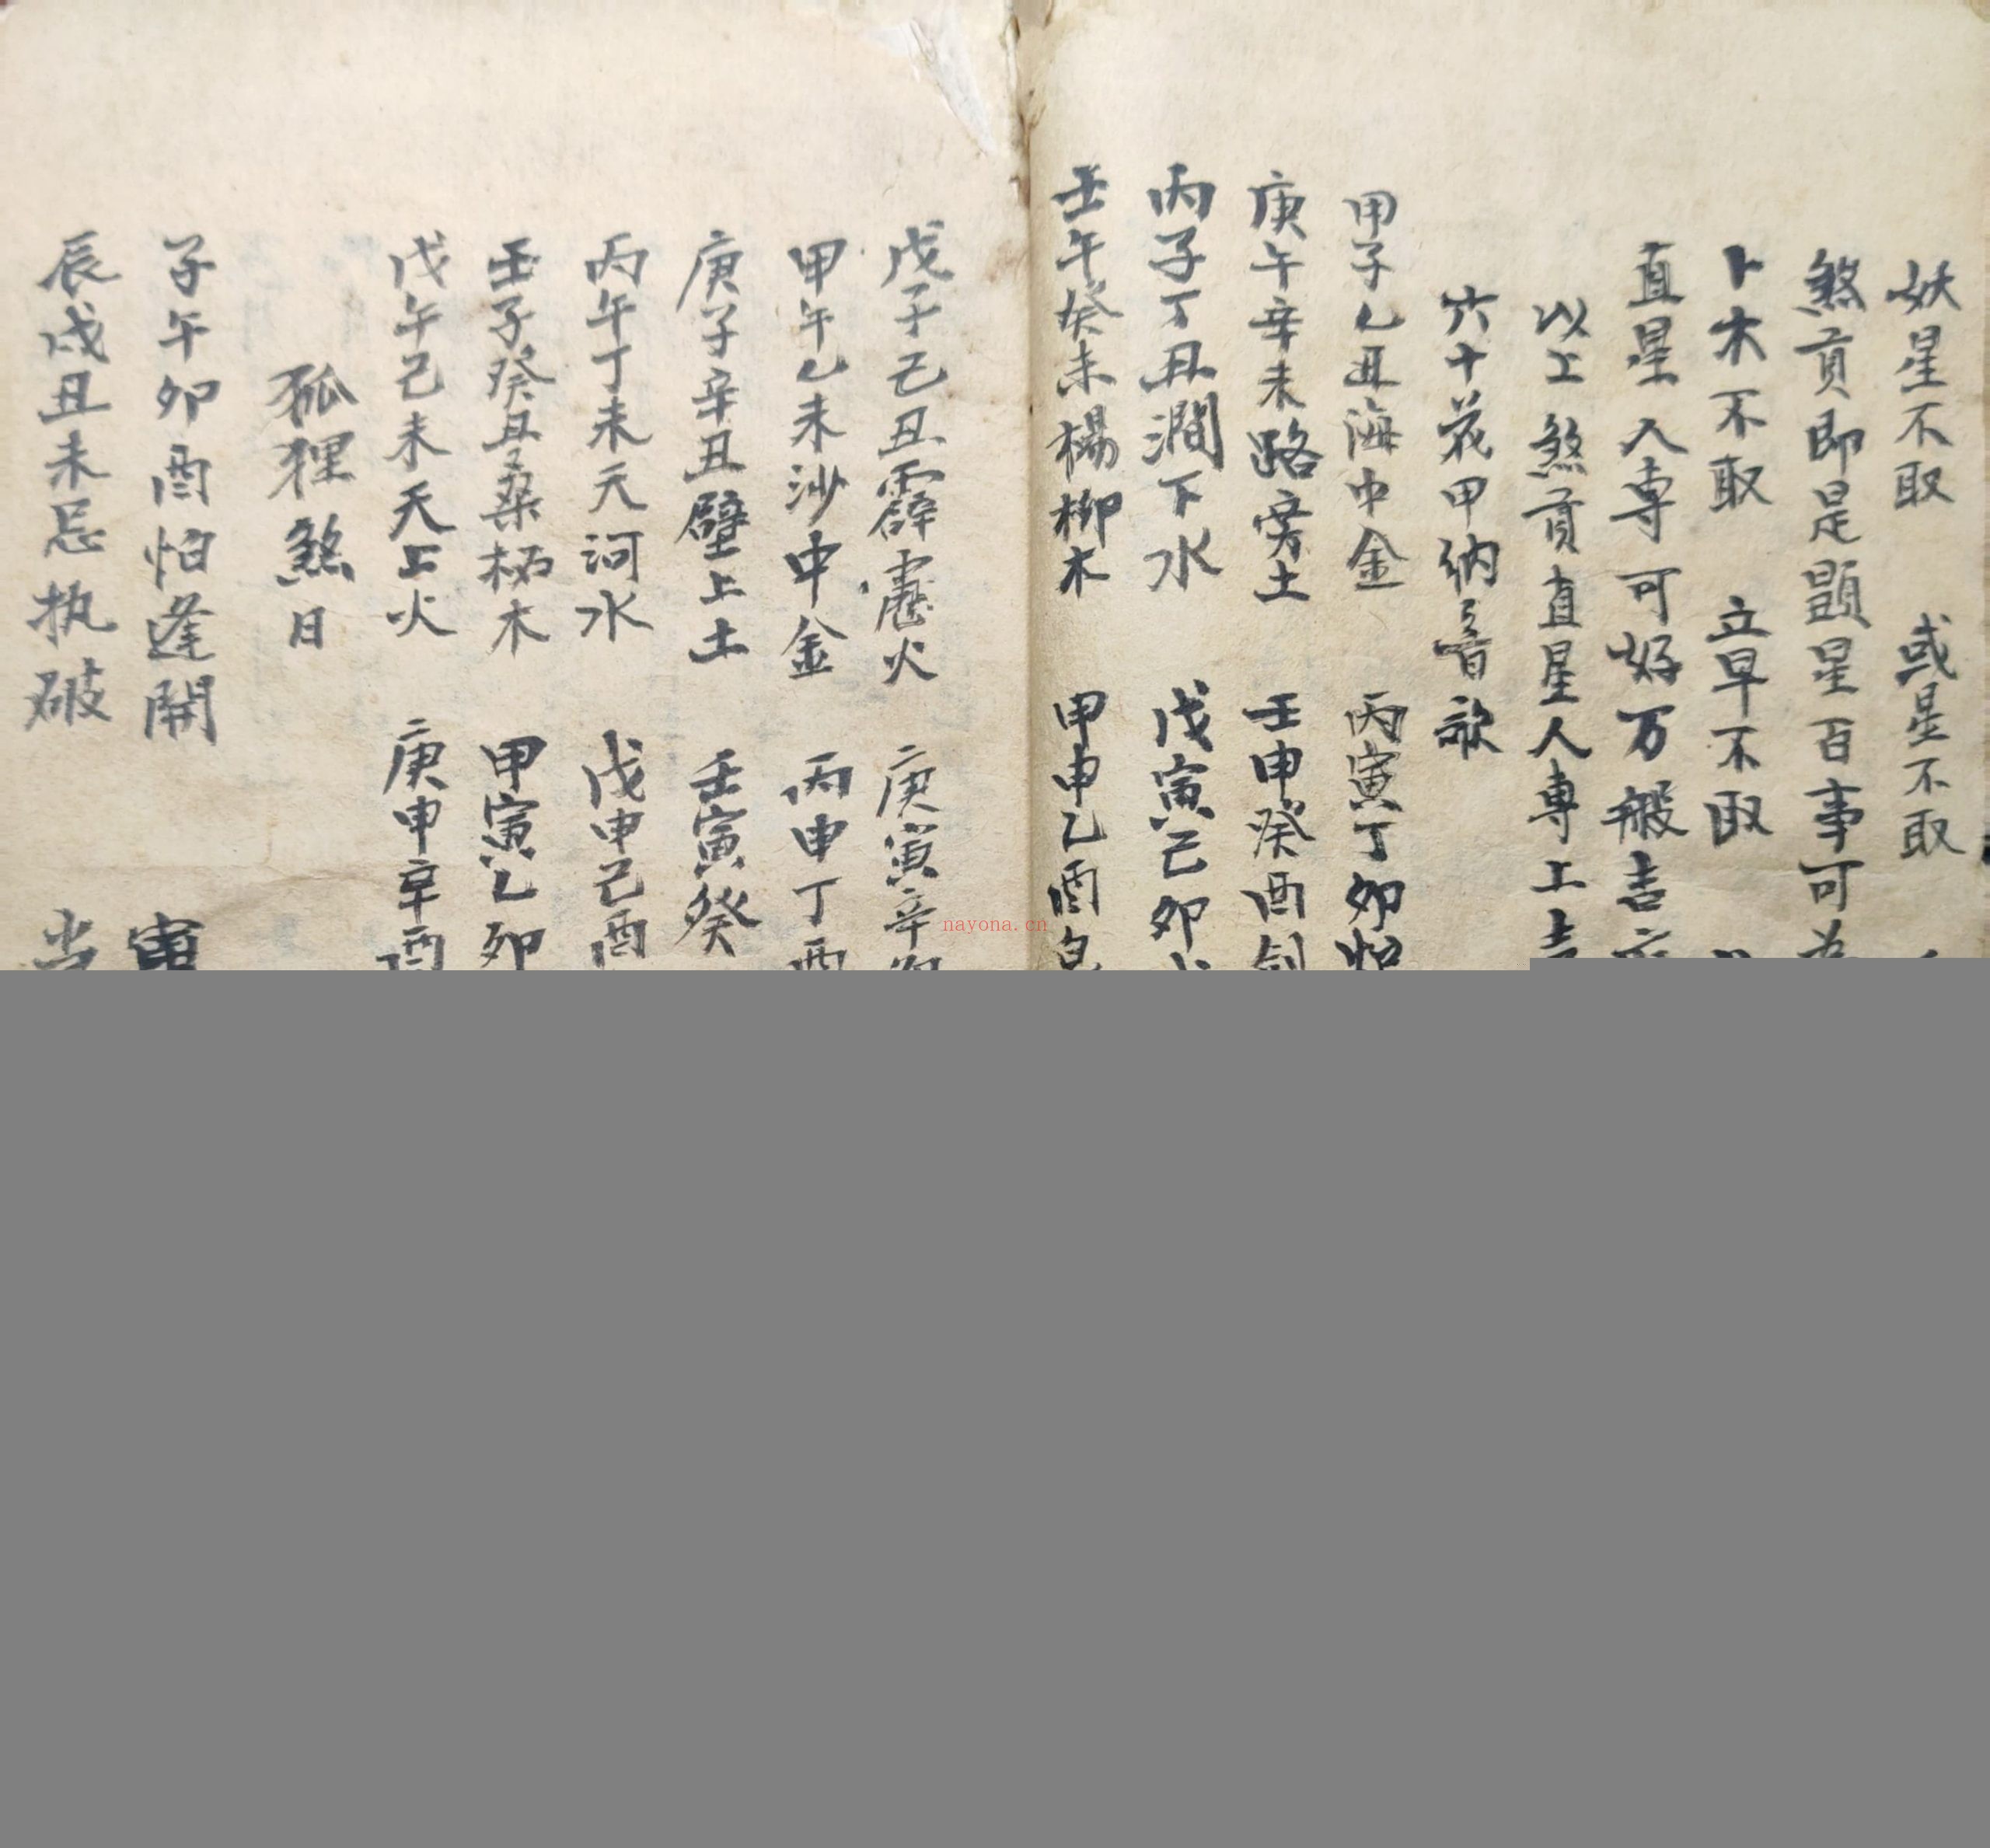 妖星不取　或星不取
煞貢即是顕星百事可為
卜木不取　立早不取
直星入專可好万般吉
以上煞貢直星人專上吉
六十花甲納音歌
甲子乙丑海中金　丙寅丁卯炉
庚午辛未路旁土　壬申癸酉剑
丙子丁丑澗下水　戊寅己卯城
壬午癸未楊柳木　甲申乙酉
戊子己丑霹靂火　庚寅辛卯
甲午乙未沙中金　丙申丁酉
庚子辛丑壁上土　壬寅癸
丙午丁未天河水　戊申己酉
壬子癸丑桑柘木　甲寅乙卯
戊午己未天上火　庚申辛酉
孤狸煞日
子午卯酉怕蓬開　寅
辰戌丑未忌执破　当
nayona.cn